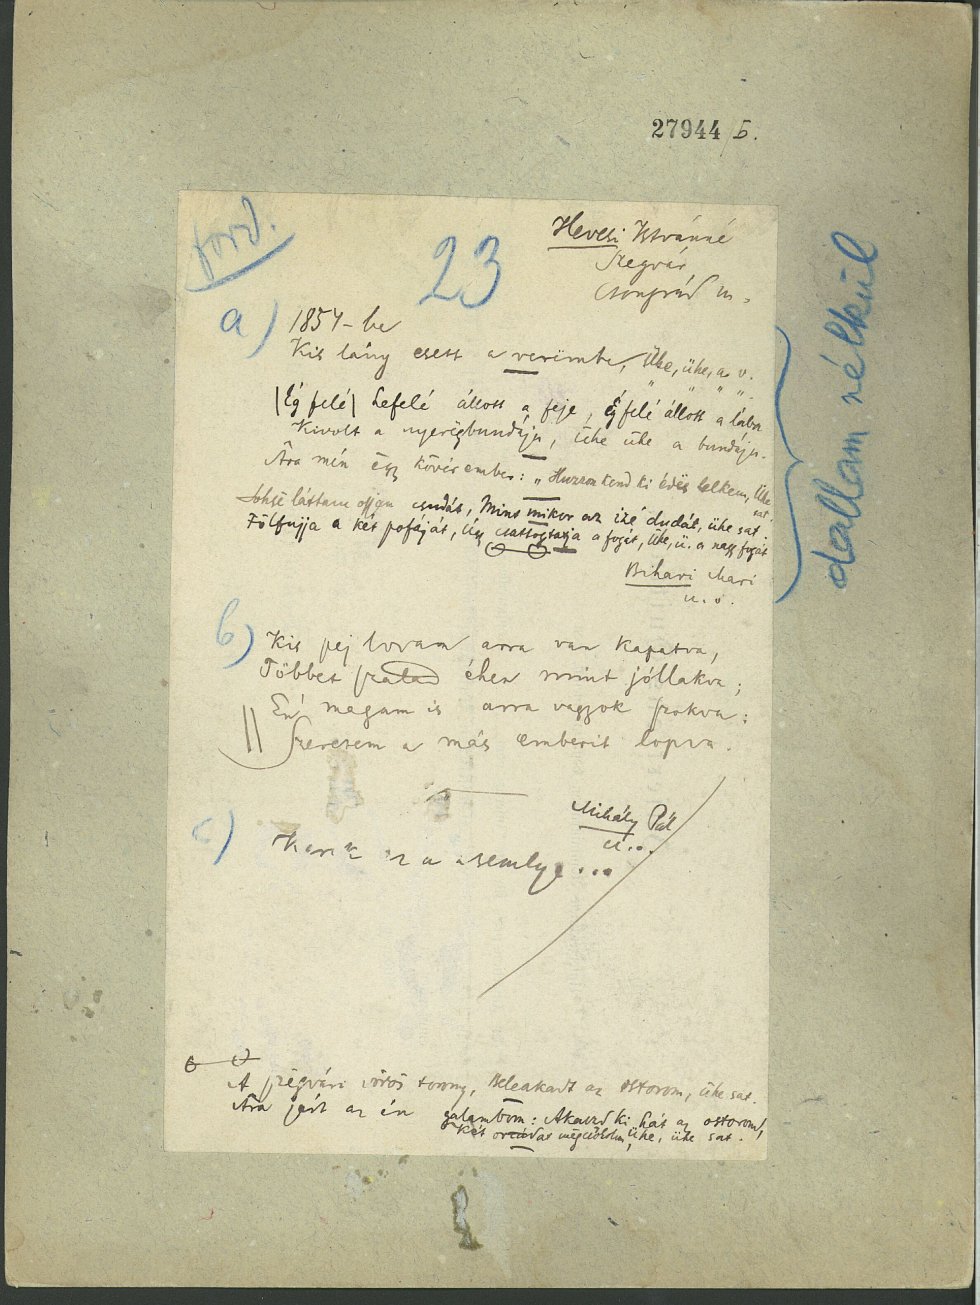 27944/b.
ford.
23
Hevesi Istvánné
Szegvár,
Csongrád m.
dallam nélkül
a) 1854-be
Kis lány esett a verimbe, Ühe, ühe, a v.
(Ég felé) Lefelé állott a feje, Ég felé állott a lába
Kivolt a nyerigbundája, ühe ühe a bundája.
Ára mén égy kövér ember: „Huzzon kend ki édes lelkem, ühe sat.
Sohse láttam ojjan csudát, Mint mikor az izé dudál, ühe sat.
Fölfujja a két pofáját, Úgy csattogtatja a fogát, Ühe, ü. a nagy fogát
Bihari Mari
u. o.
b) Kis pej lovam arra van kapatva,
Többet szalad éhen mint jóllakva;
Én magam is arra vagyok szokva:
Szeretem a más emberit lopva.
Mihály Pál
u. o.
c)
A szegvári vörös torony, Beleakadt az ostorom, ühe sat.
Ára járt az én galambom: Akaszd ki hát az ostorom,
Két ühe, ühe sat.